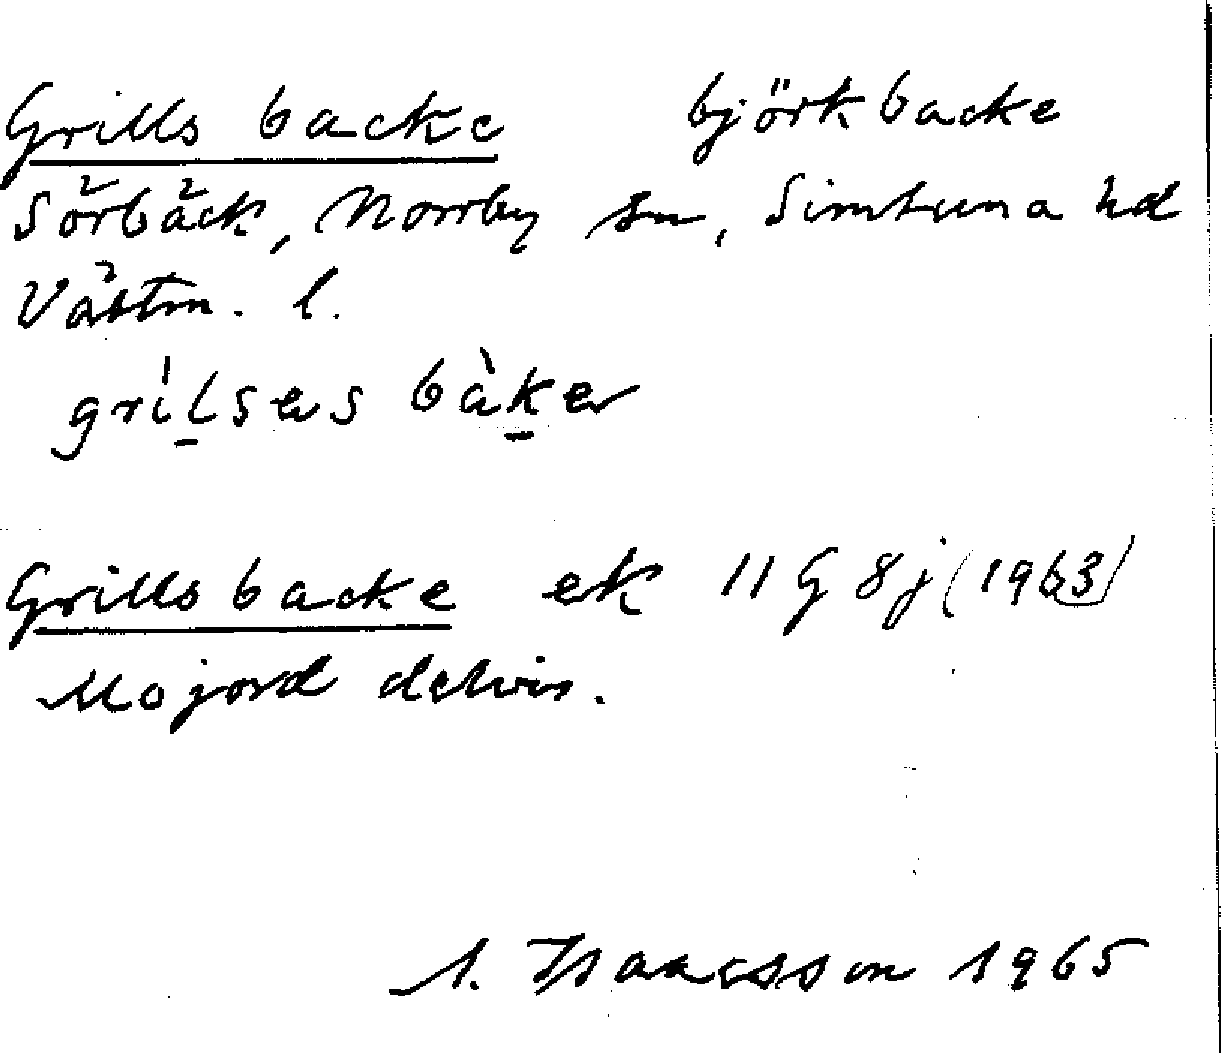 Grills backe björkbacke
Sörbäck, Norrby sn, Simtuna hd
Västm. l.
grìlsas bàkar
Grillsbacke ek 11G 8j (1963)
Mojord delvis.
Isaacsson 1965